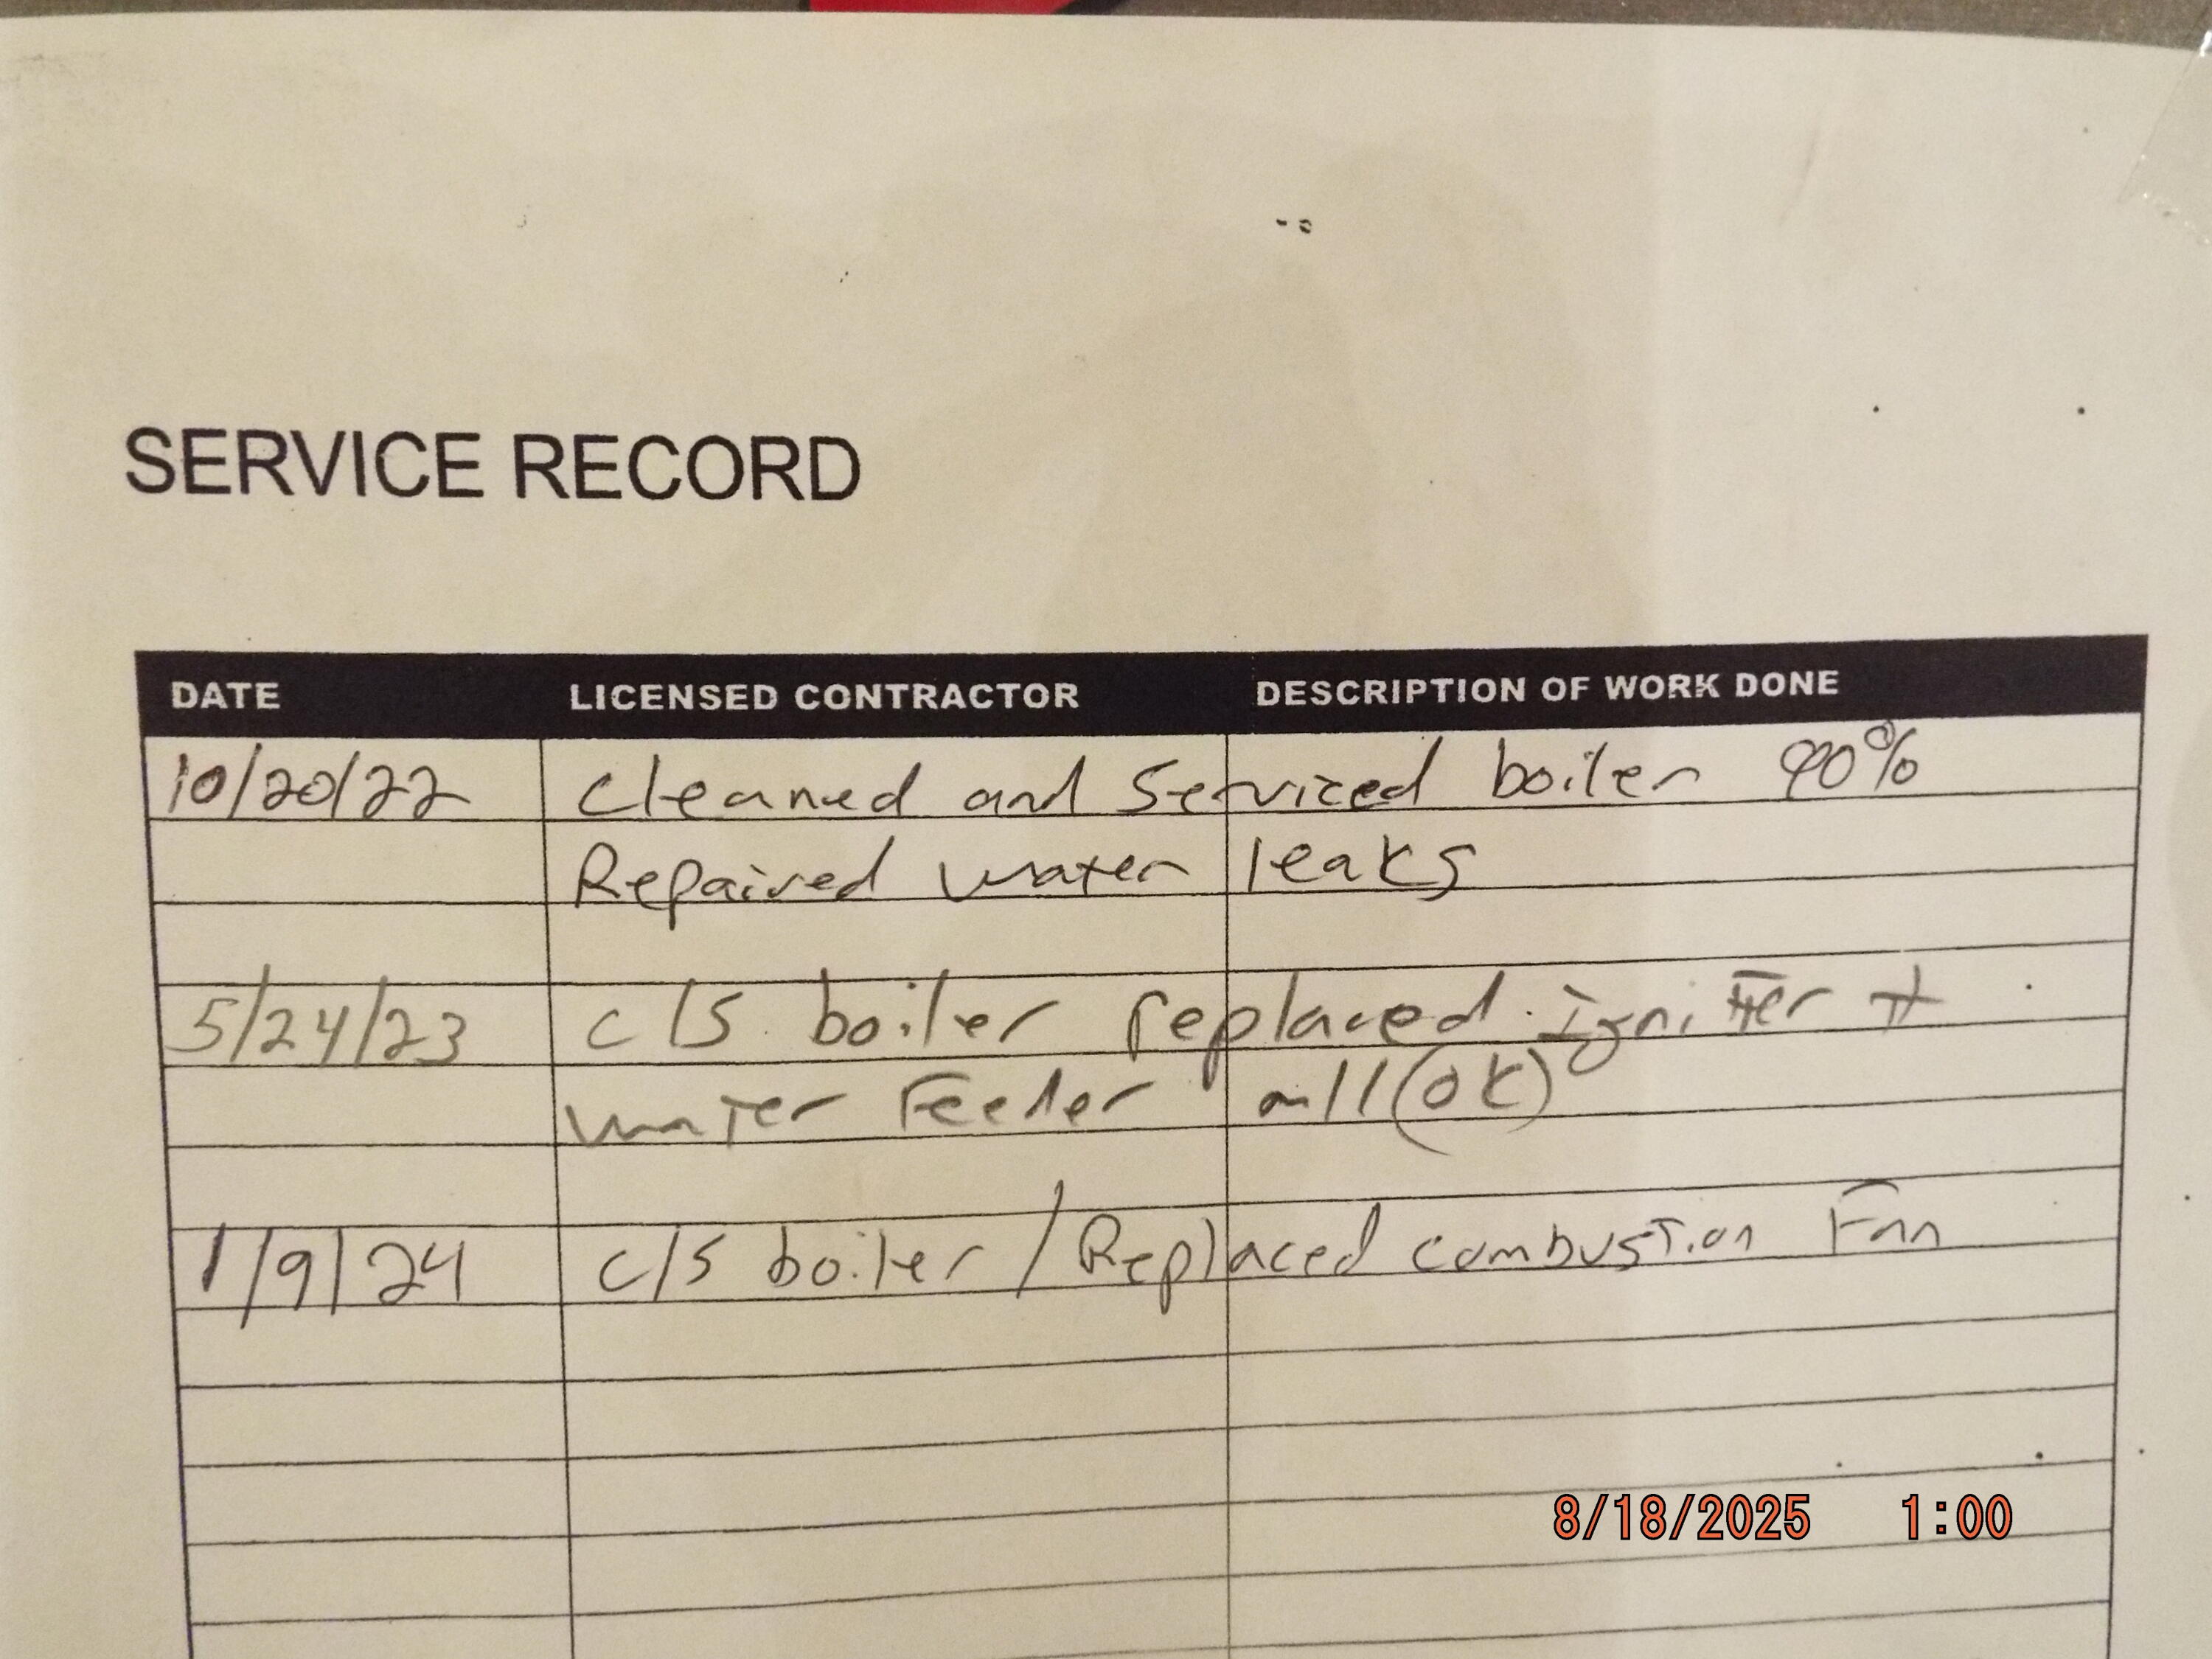 SERVICE RECORD
DATE LICENSED CONTRACTOR DESCRIPTION OF WORK DONE
10/20/22 Cleaned and Serviced boiler 90%
Repaired water leaks
5/24/23 C/S boiler replaced igniter +
water Feeder all (OK)
1/9/24 C/S boiler / Replaced combustion Fan
8/18/2025 1:00